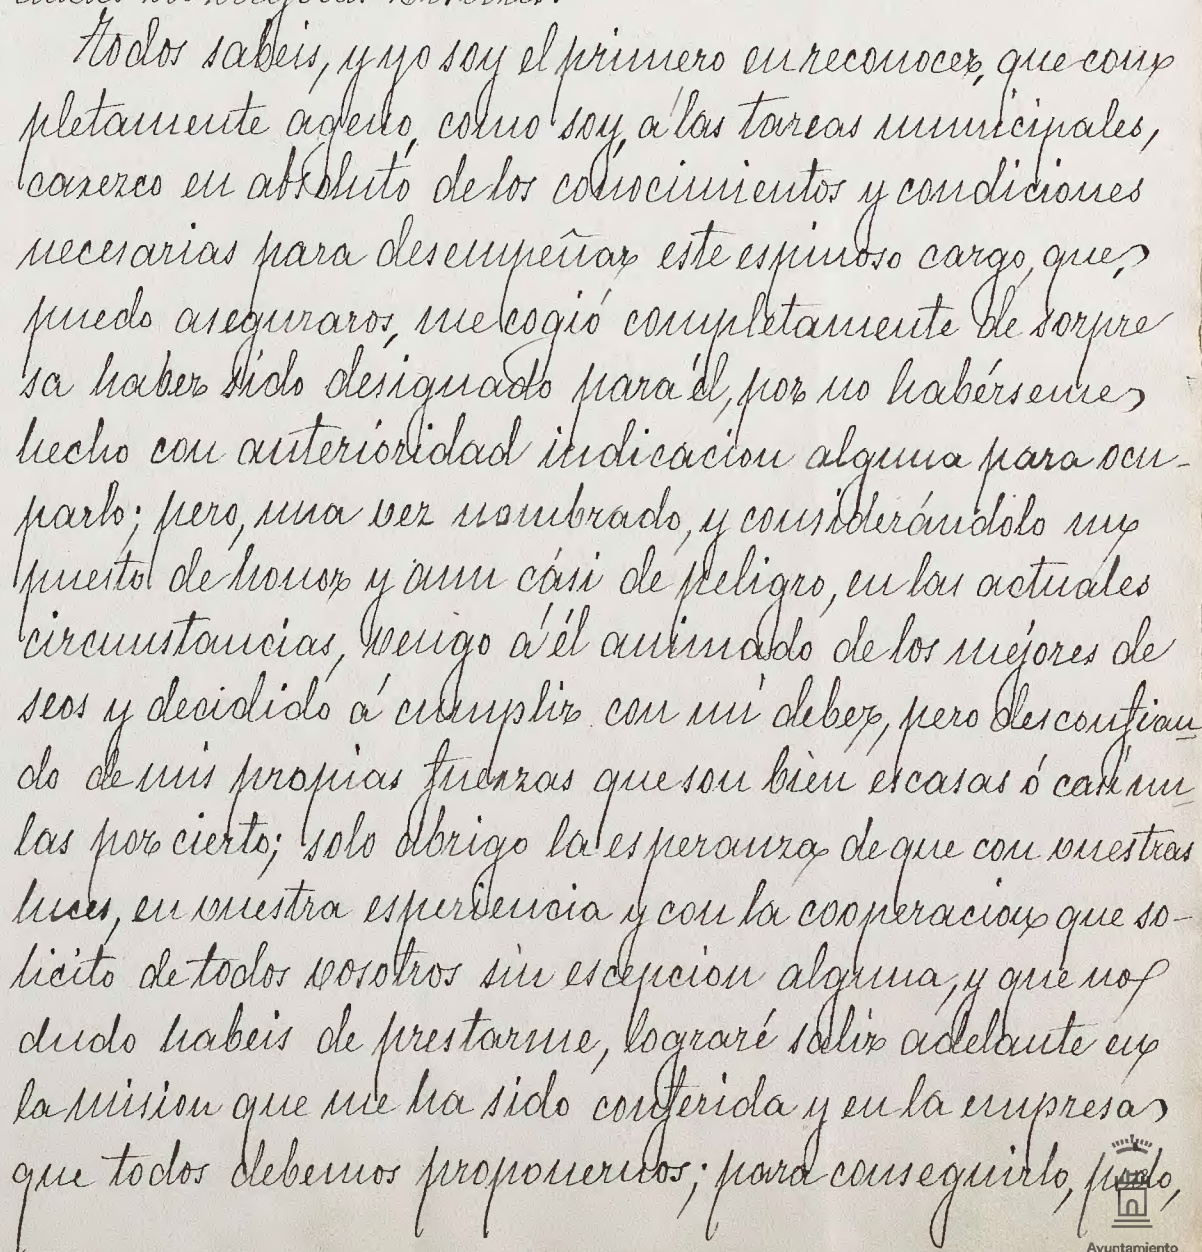 Todos sabeis, y yo soy el primero en reconocer, que com
pletamente ageno, como soy, á las tareas municipales,
carezco en absoluto de los conocimientos y condiciones
necesarias para desempeñar este espinoso cargo, que,
puedo aseguraros, me cogió completamente de sorpre
sa haber sido designado para él, por no habérseme
hecho con anterioridad indicacion alguna para ocu-
parlo; pero, una vez nombrado, y considerándolo un
puesto de honor y aun cási de peligro, en las actuales
circunstancias, vengo á él animado de los mejores de
seos y decidido á cumplir con mi deber, pero desconfian
do de mis propias fuerzas que son bien escasas ó casi nu
las por cierto; solo abrigo la esperanza de que con vuestras
luces, en vuestra esperiencia y con la cooperacion que so-
licito de todos vosotros sin escepcion alguna, y que no
dudo habeis de prestarme, lograré salir adelante en
la mision que me ha sido conferida y en la empresa
que todos debemos proponernos; para conseguirlo, pido,
Ayuntamiento